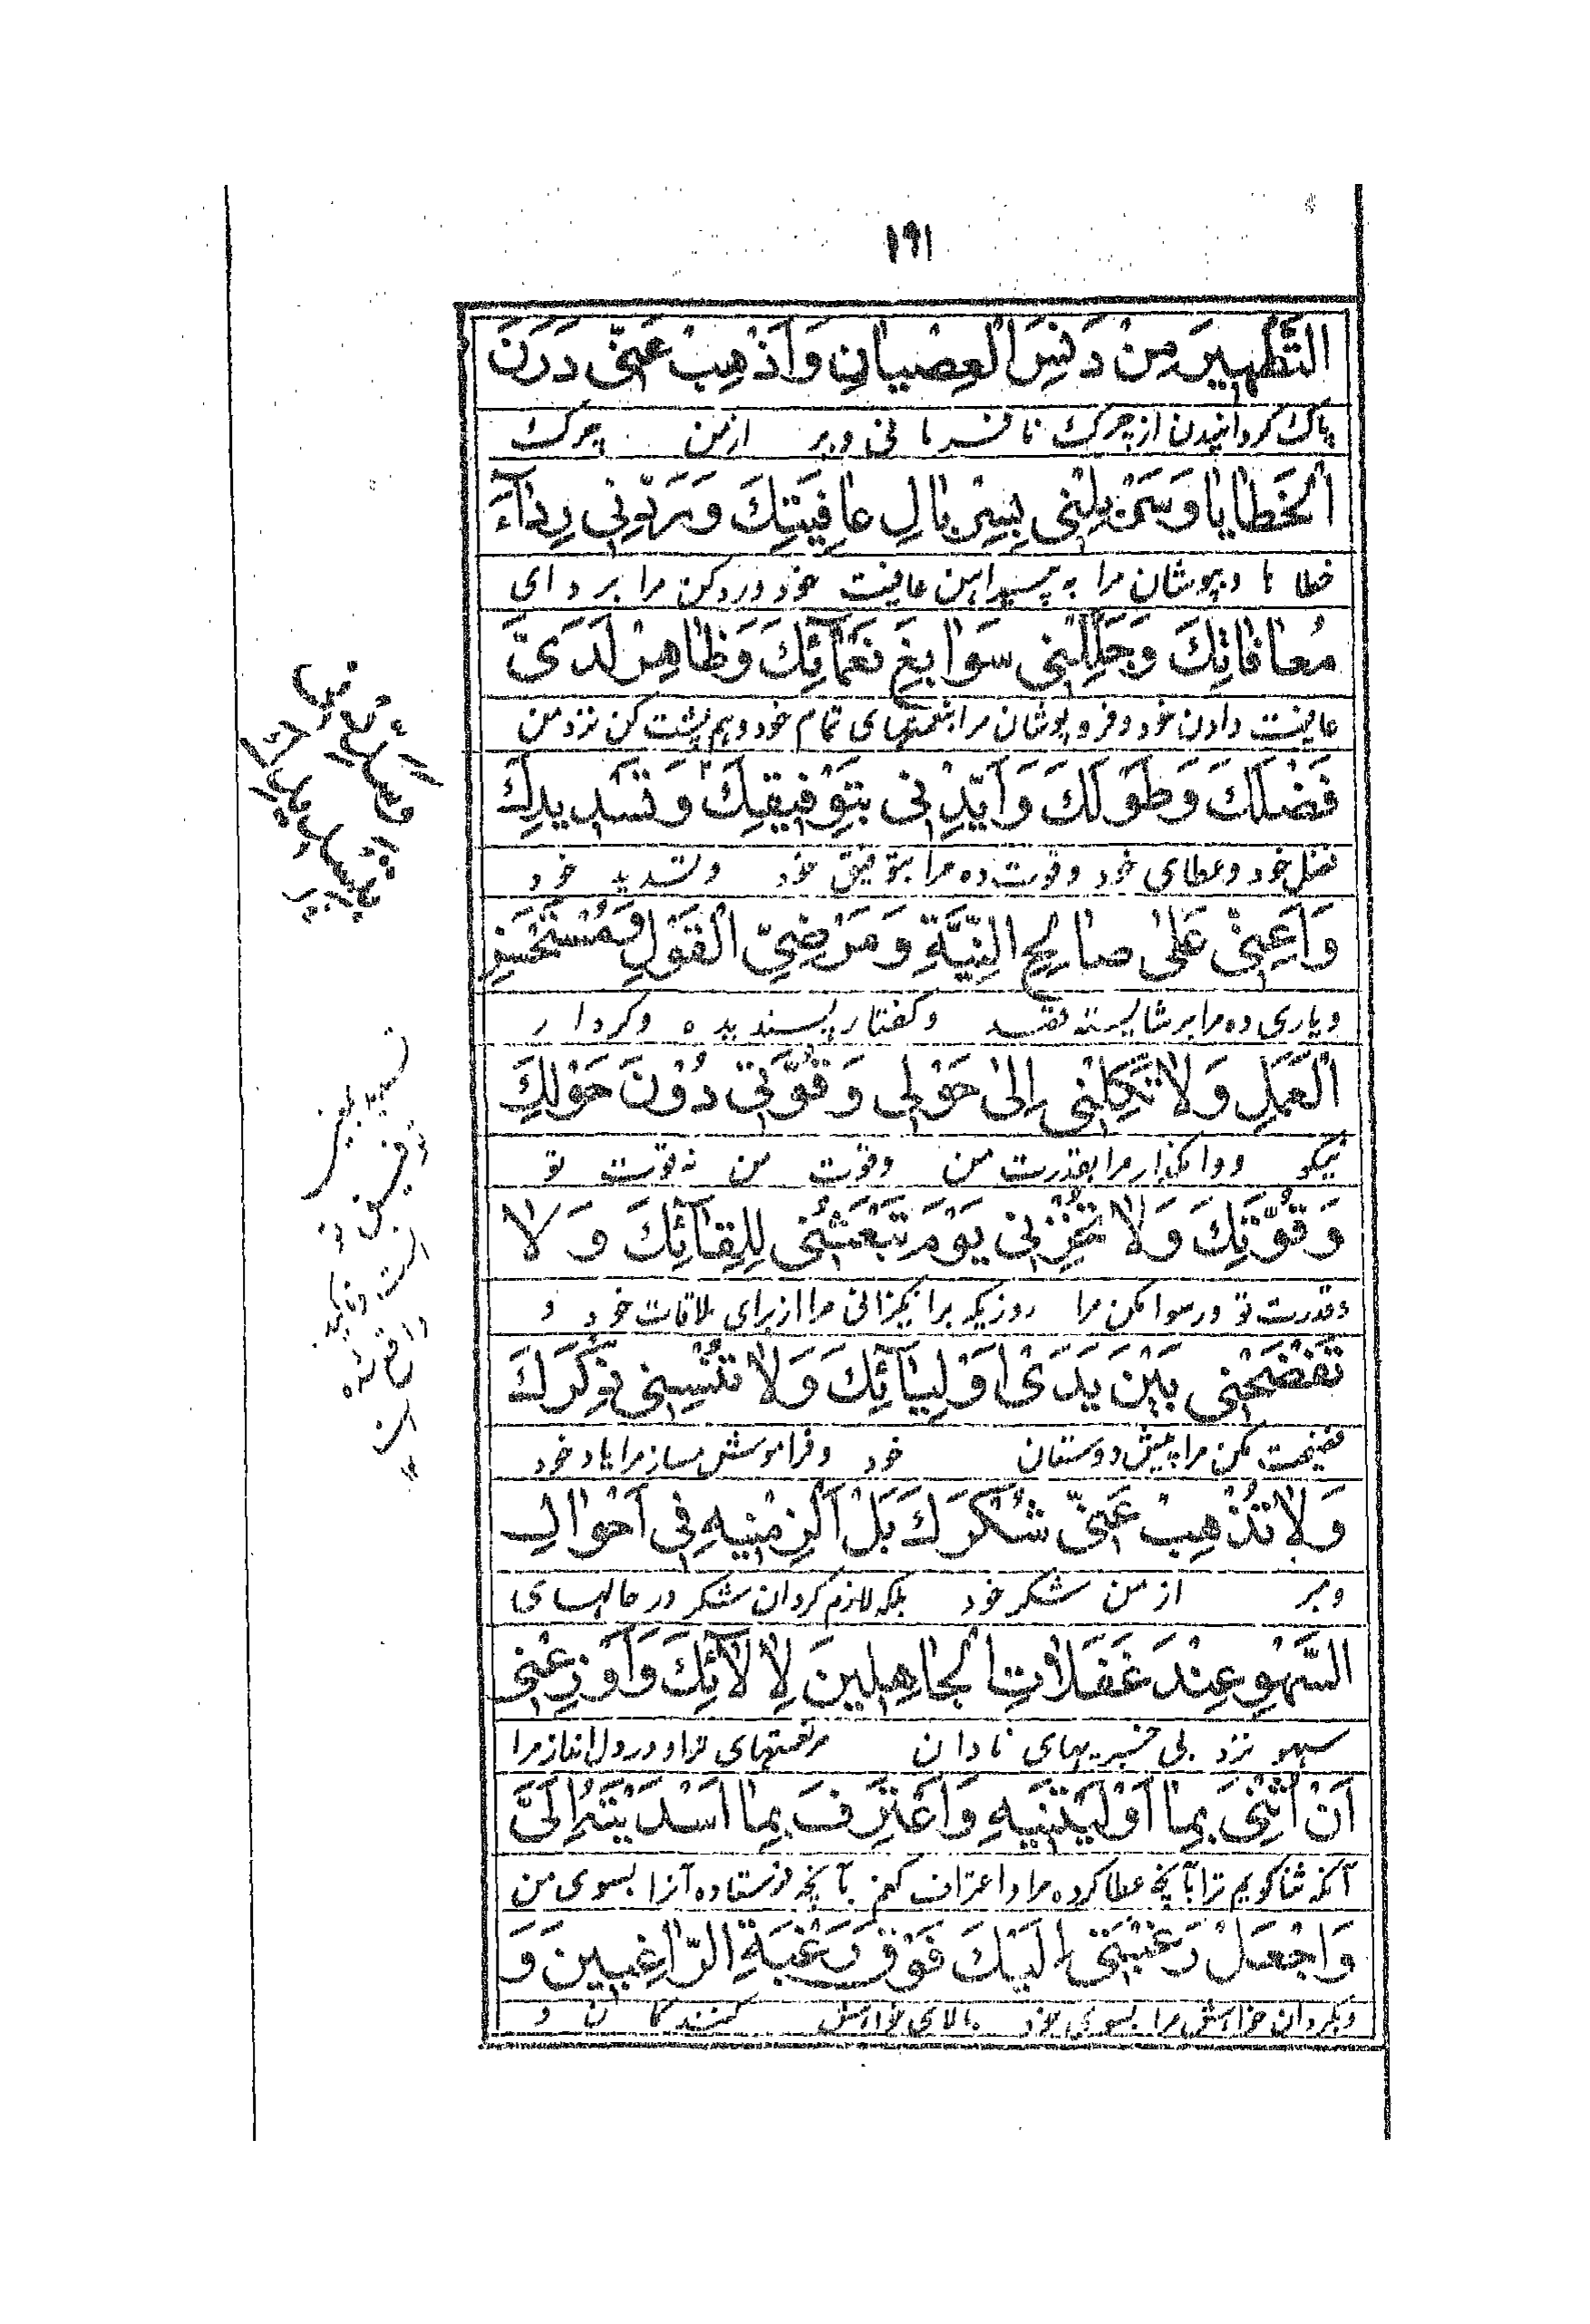 ۱۹۱
التَّطْهِيرَ مِنْ دَنَسِ الْعِصْيَانِ وَاَذْهِبْ عَنّى دَرَنَ
پاک کردانیدن از چرک نافرمانی و ببر از من چرک
الْخَطَايَا وَسَرْبِلْنِى بِسِرْبَالِ عَافِيَتِكَ وَرَدِّنِى رِدَآءَ
خطا ها و بپوشان مرا به پیراهن عافیت خود و رد کن مرا بردای
مُعَافَاتِكَ وَجَلِّلْنِى سَوَابِغَ نَعْمَآئِكَ وَظَاهِرْ لَدَىَّ
عافیت دادن خود و فرو پوشان مرا بنعمتهای تمام خود و هم پشت کن نزد من
فَضْلَكَ وَطَوْلَكَ وَاَيِّدْنِى بِتَوْفِيقِكَ وَتَسْدِيدِكَ
فضل خود و عطای خود و قوت ده مرا بتوفیق خود و تسدید خود
وَاَعِنّى عَلى صَالِحِ النِّيَّةِ وَمَرْضِىِّ الْقَوْلِ وَمُسْتَحْسَنِ
و یاری ده مرا بر شایسته قصد و کفتار پسندیده و کردار
الْعَمَلِ وَلَا تَكِلْنِى اِلى حَوْلِى وَقُوَّتِى دُونَ حَوْلِكَ
نیکو و وا مکذار مرا بقدرت من و قوت من نه قوت تو
وَقُوَّتِكَ وَلَا تُخْزِنِى يَوْمَ تَبْعَثُنِى لِلِقَآئِكَ وَلَا
و قدرت تو و رسوا مکن مرا روزیکه برانکیزانی مرا از برای ملاقات خود و
تَفْضَحْنِى بَيْنَ يَدَىْ اَوْلِيَآئِكَ وَلَا تُنْسِنِى ذِكْرَكَ
فضیحت مکن مرا پیش دوستان خود و فراموش مساز مرا یاد خود
وَلَا تُذْهِبْ عَنّى شُكْرَكَ بَلْ اَلْزِمْنِيهِ فِى اَحْوَالِ
و مبر از من شکر خود بلکه لازم کردان شکر در حالهای
السَّهْوِ عِنْدَ غَفَلَاتِ الْجَاهِلِينَ لِاٰلَآئِكَ وَاَوْزِعْنِى
سهو نزد بی خبریهای نادان مر نعمتهای ترا و در دل انداز مرا
اَنْ اُثْنِىَ بِمَا اَوْلَيْتَنِيهِ وَاَعْتَرِفَ بِمَا اَسْدَيْتَهُ اِلَىَّ
آنکه ثنا کویم ترا بآنچه عطا کرده مرا و اعتراف کنم بآنچه فرستاده آنرا بسوی من
وَاجْعَلْ رَغْبَتِى اِلَيْكَ فَوْقَ رَغْبَةِ الرَّاغِبِينَ وَ
و بکردان خواهش مرا بسوی خود بالای خواهش کنندکان و
تسدید بمعنی
توفیق
است و تاکید
واقع شده
است
۱۲